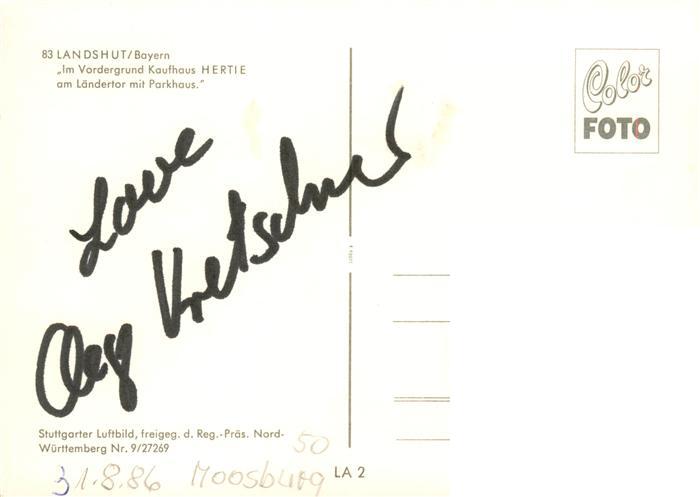 83 LANDSHUT/Bayern
„Im Vordergrund Kaufhaus HERTIE
am Ländertor mit Parkhaus."
Color
FOTO
Love
Oleg Kretschmer
Stuttgarter Luftbild, freigeg. d. Reg.-Präs. Nord-
Württemberg Nr. 9/27269
50
31.8.86 Moosburg
LA 2